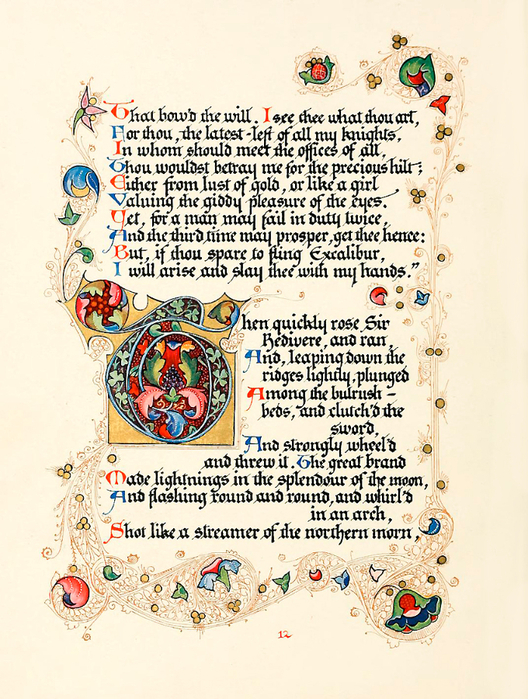 That bow'd the will. I see thee what thou art,
For thou, the latest-left of all my knights,
In whom should meet the offices of all,
Thou wouldst betray me for the precious hilt;
Either from lust of gold, or like a girl
Valuing the giddy pleasure of the eyes.
Yet, for a man may fail in duty twice,
And the third time may prosper, get thee hence:
But, if thou spare to fling Excalibur,
I will arise and slay thee with my hands."
Then quickly rose Sir
Bedivere, and ran,
And, leaping down the
ridges lightly, plunged
Among the bulrush-
beds, and clutch'd the
sword,
And strongly wheel'd
and threw it. The great brand
Made lightnings in the splendour of the moon,
And flashing round and round, and whirl'd
in an arch,
Shot like a streamer of the northern morn,
12